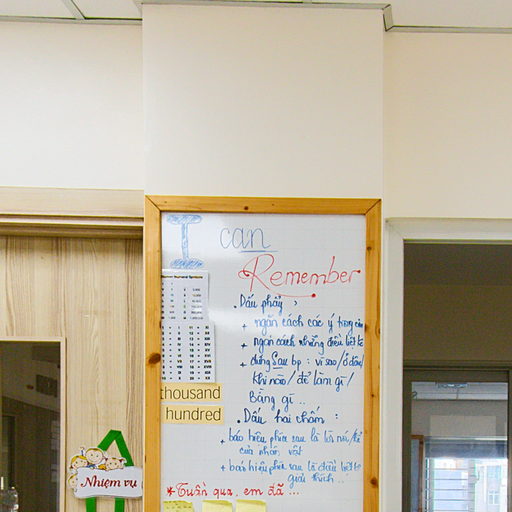 I can
Remember
. Dấu phẩy ,
+ ngăn cách các ý trong câu
+ ngăn cách những điều liệt kê
+ đứng Sau bp : vì sao / ở đâu /
khi nào / để làm gì /
Bằng gì ..
. Dấu hai chấm :
+ báo hiệu phía sau là lời nói /
của nhân vật
+ báo hiệu phía sau là điều liệt kê
giải thích ..
* Tuần qua, em đã ...
thousand
hundred
Nhiệm vụ